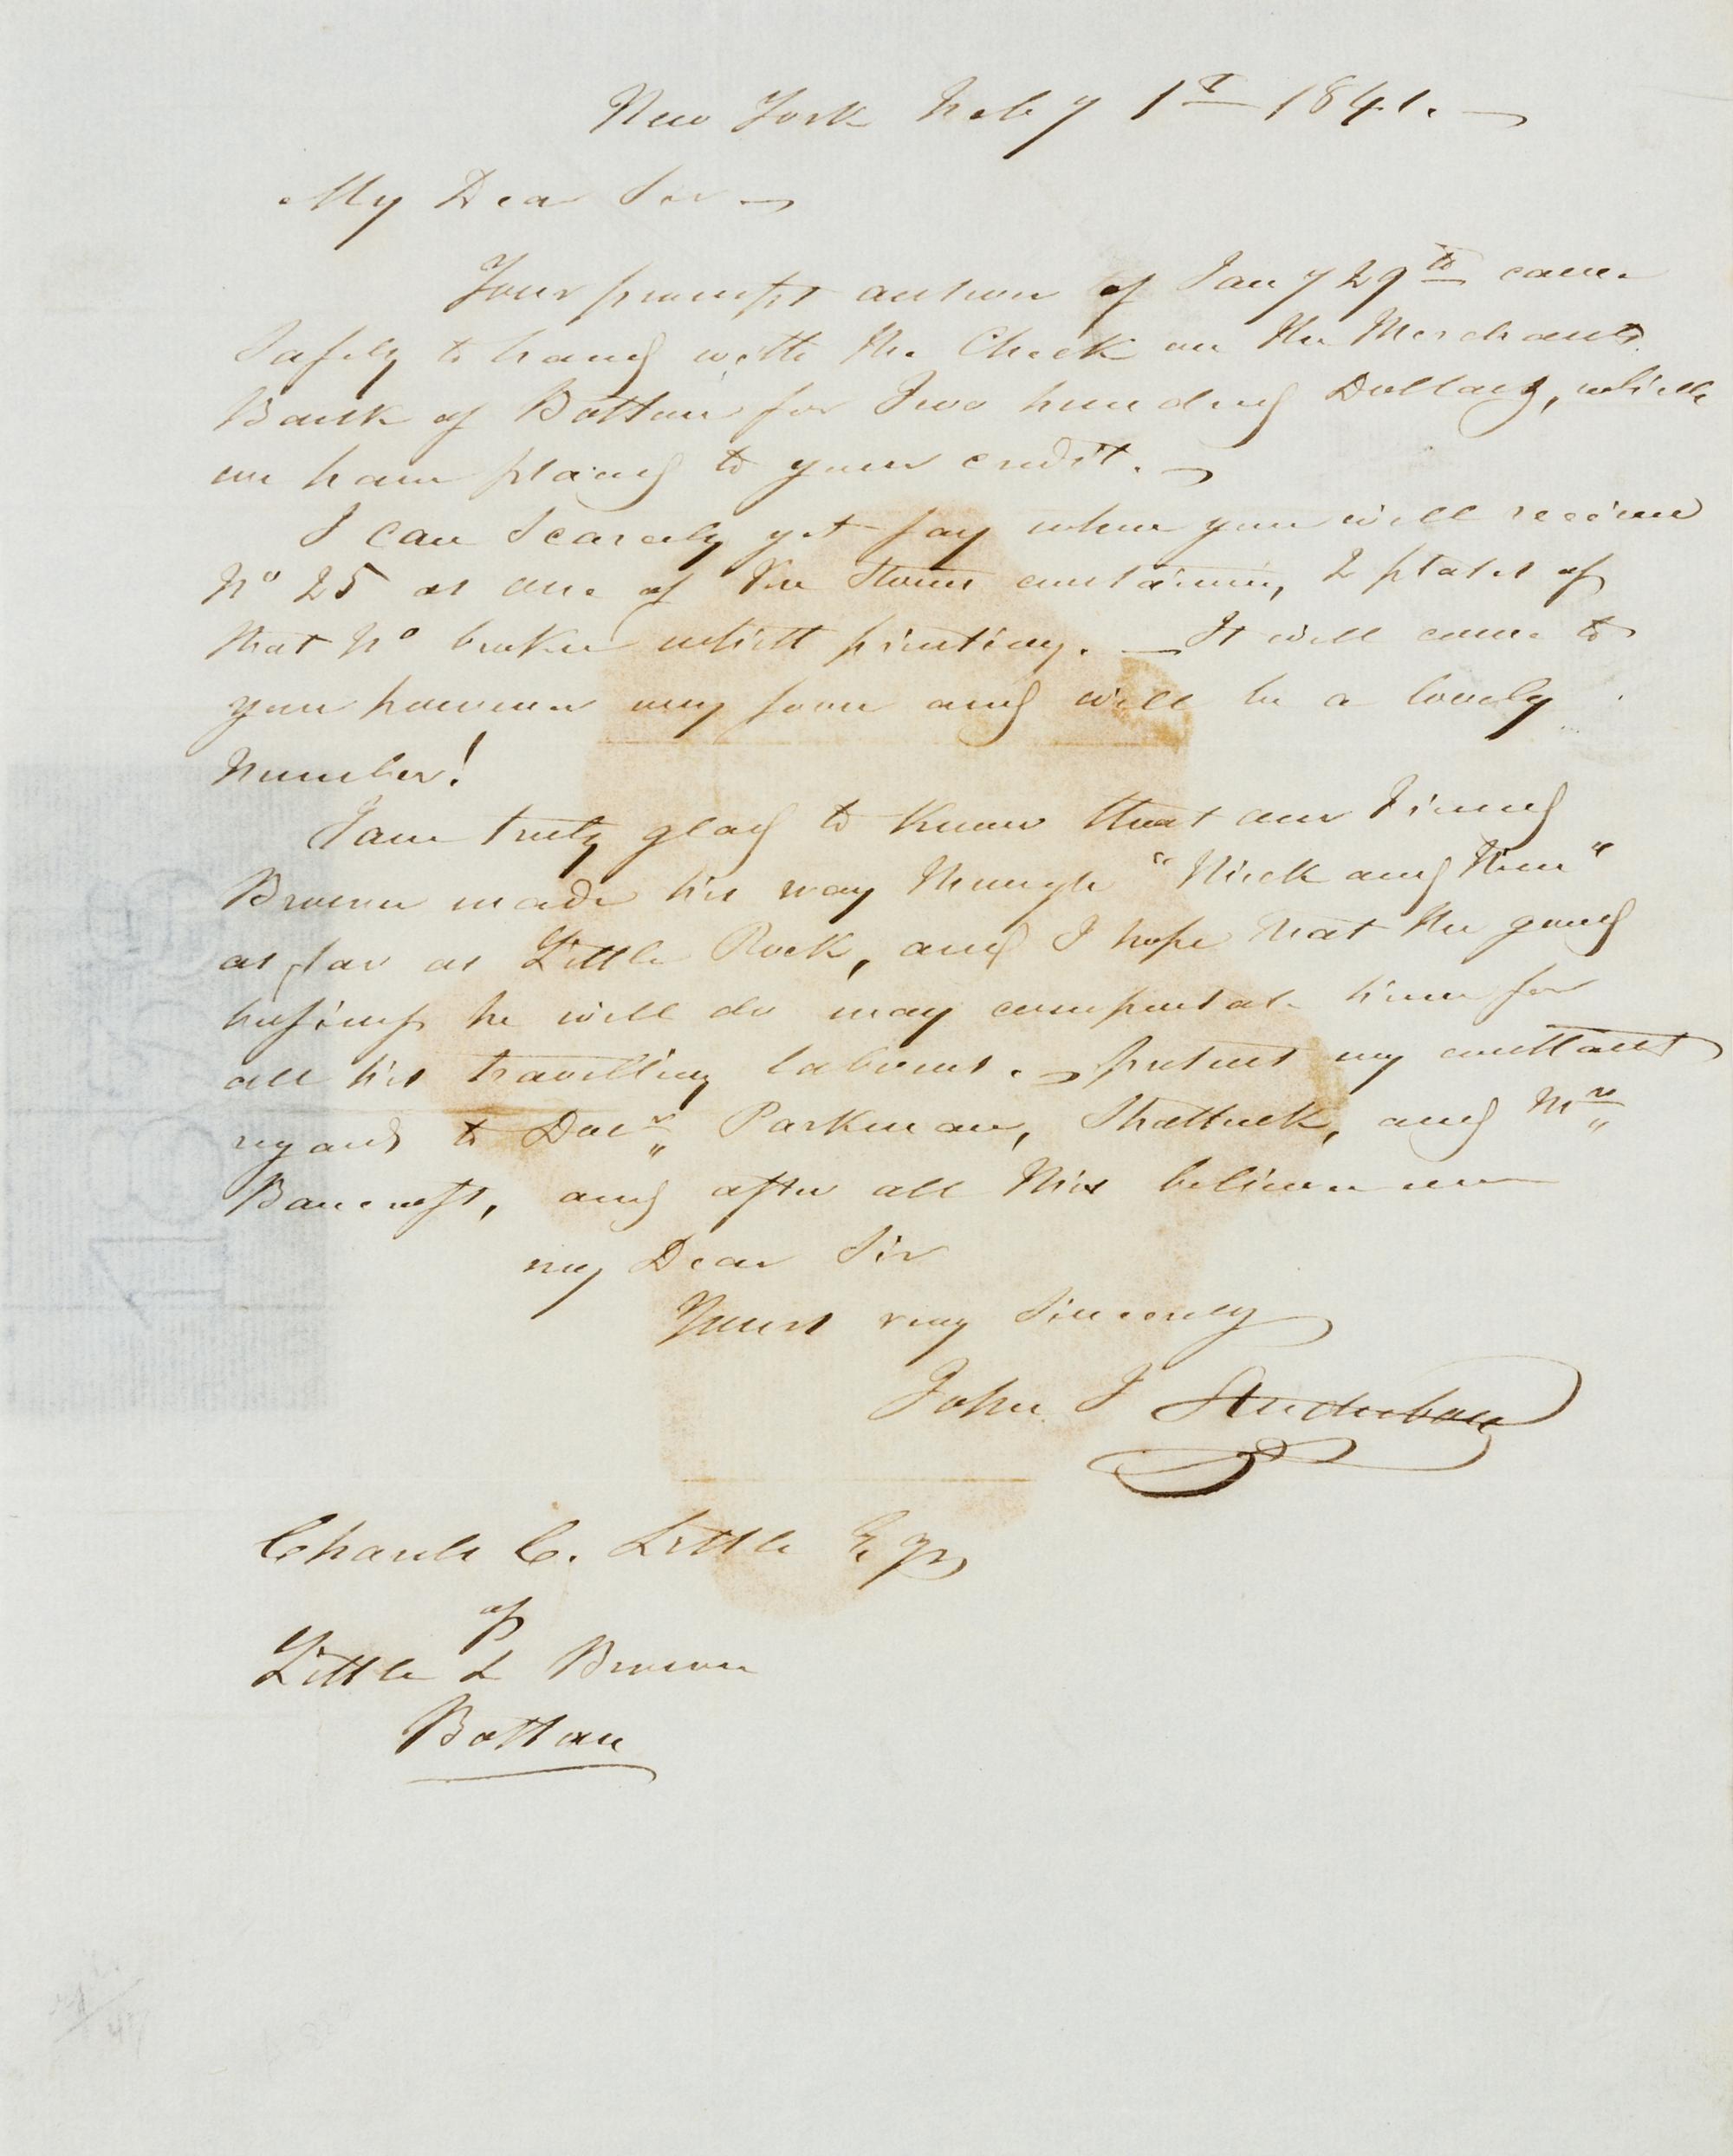 New York Feby 1st 1841.
My Dear Sir
Your prompt answer of Jany 29th came
safely to hand with the Check on the Merchants
Bank of Boston for Two hundred Dollars, which
we have placed to your credit.
I can scarcely yet say when you will receive
No 25 as one of the Stones containing 2 plates of
that No broke whilst printing. — It will come to
you however very soon and will be a lovely
Number!
I am truly glad to know that our Friend
Brown made his way through "Thick and Thin"
as far as Little Rock, and I hope that the good
business he will do may compensate him for
all his travelling labours. — present my constant
regards to Docrs Parkman, Shattuck, and Mr
Bancroft, and after all this believe me
my Dear Sir
Yours very Sincerely
John J Audubon
Charles C. Little Esqr
of
Little & Brown
Boston